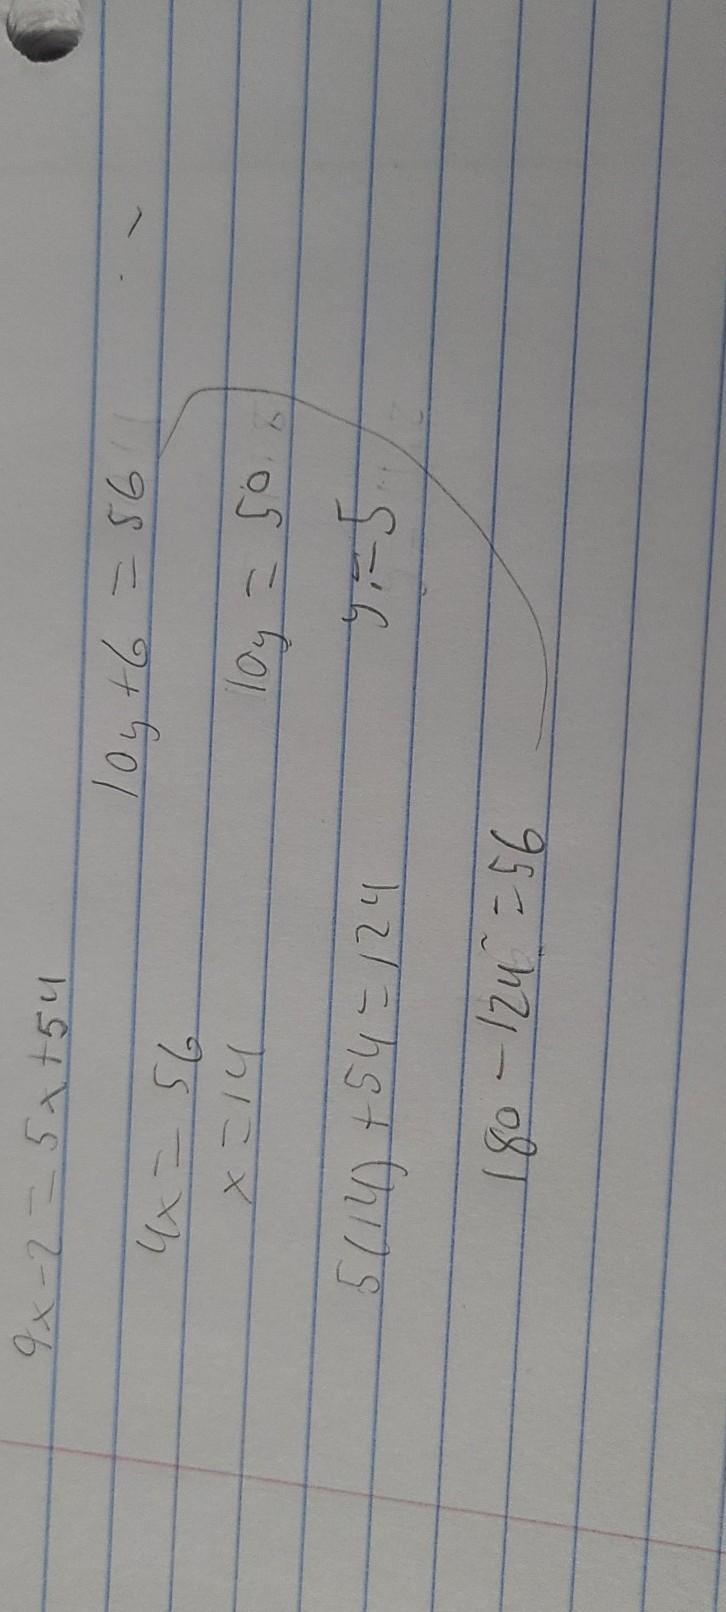 9x-2=5x+54
10y+6=56
4x=56
10y=50
x=14
y=5
5(14)+54=124
180-124=56